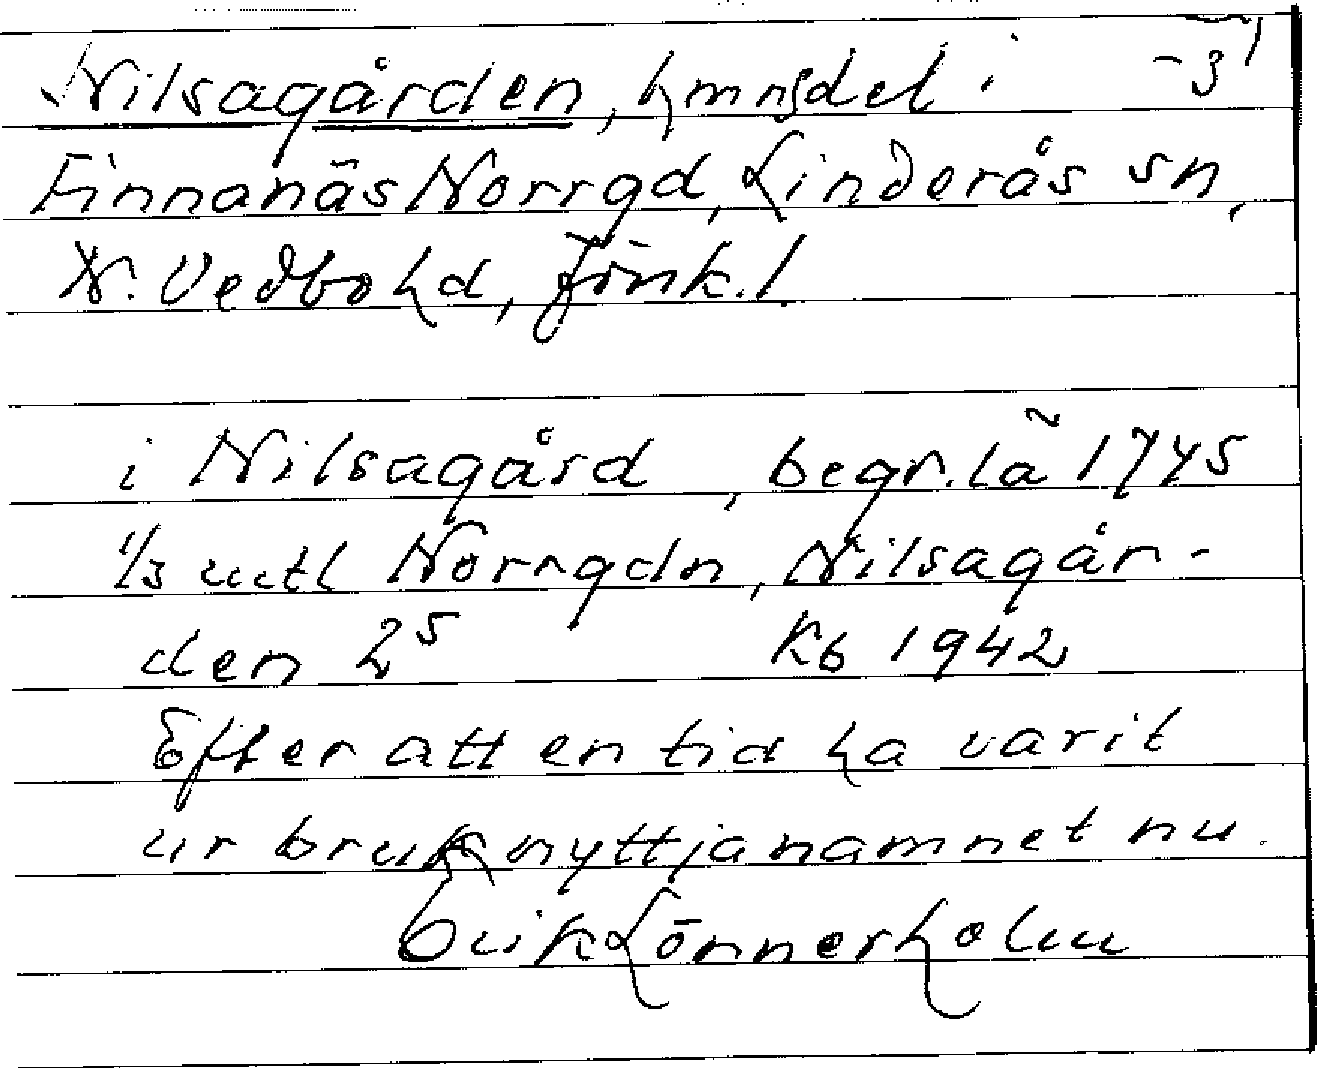 Nilsagården, hmnsdel i -3
Finnanäs Norrgd, Linderås sn,
N. Vedbo hd, Jönk. l.
i Nilsagård, begr. la 1745
1/3 mtl Norrgdn, Nilsagår-
den 2⁵ Kb 1942
Efter att en tid ha varit
ur bruk nyttja namnet nu.
Erik Lönnerholm